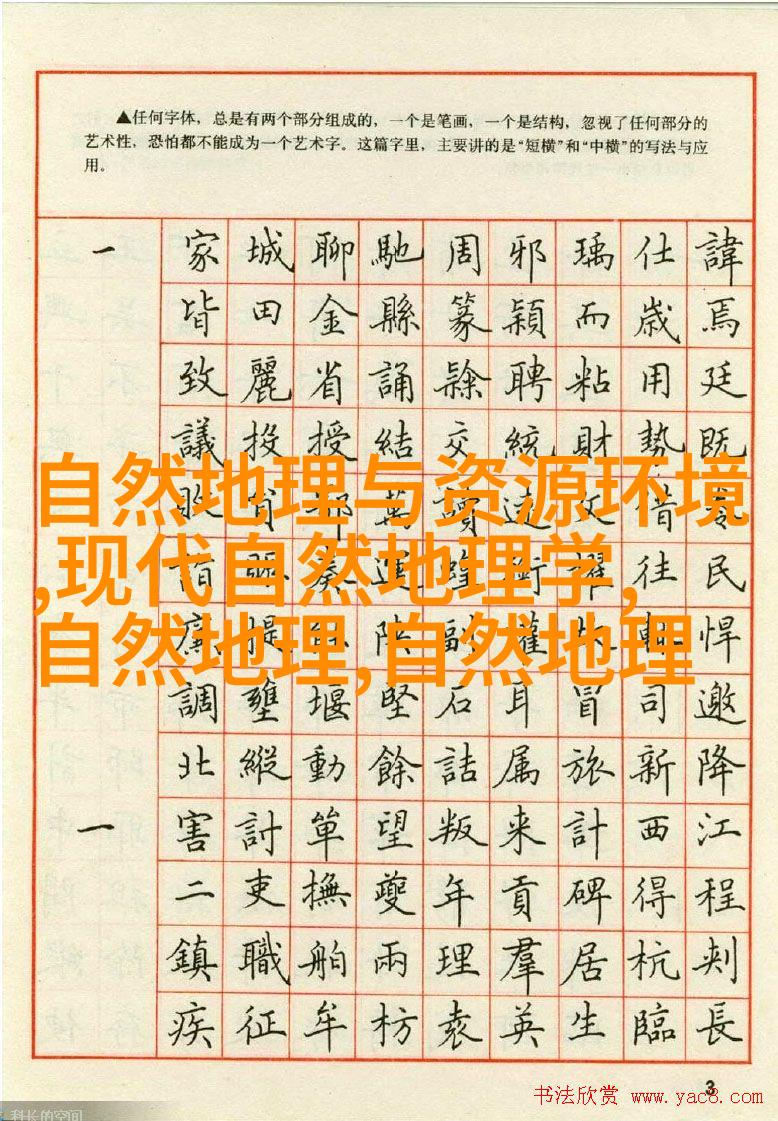 ▲任何字体，总是有两个部分组成的，一个是笔画，一个是结构，忽视了任何部分的
艺术性，恐怕都不能成为一个艺术字。这篇字里，主要讲的是“短横”和“中横”的写法与应
用。
一 家城聊馳周邪瑀仕諱
皆田金縣篆穎而歲焉
致麗省誦隸聘粘用廷
議投授結交統財勢既
自然地理与资源环境
,现代自然地理学,
自然地理,自然地理
民
悍
調壅堰堅石耳冒司邀
北縱動餘詰属旅新降
一 害討單望叛来計西江
二吏撫夔年貢碑得程
鎮職舶兩理羣居杭刺
疾征牟枋袁英生臨長
3
书法欣赏 www.yac8.com
科长的空间